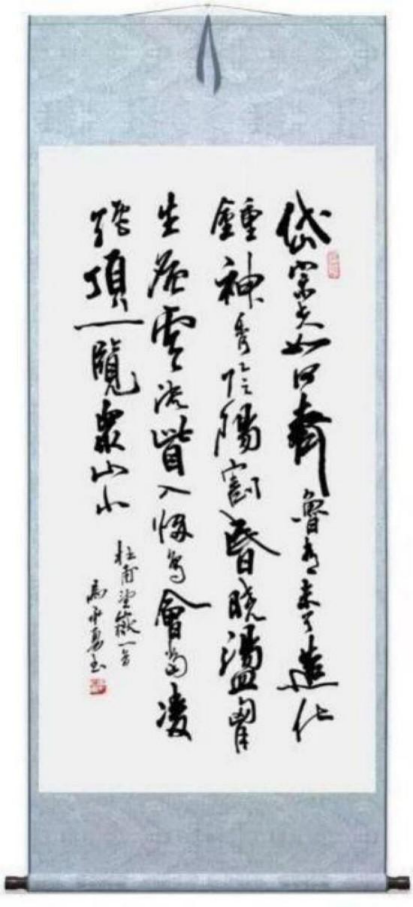 岱宗夫如何齊魯青未了造化
鍾神秀陰陽割昏曉盪胷
生層雲決眥入歸鳥會當凌
絕頂一覽衆山小
杜甫望嶽一首